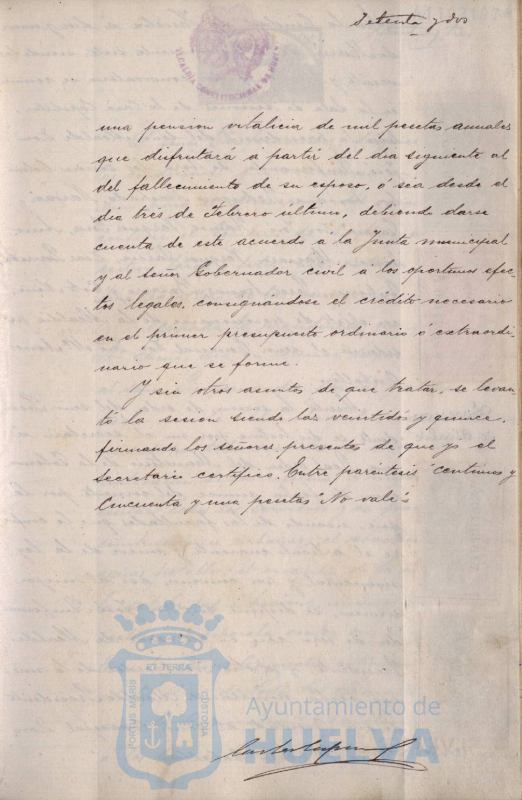 Setenta y dos
ALCALDÍA CONSTITUCIONAL DE HUELVA
una pension vitalicia de mil pesetas anuales
que disfrutará á partir del dia siguiente al
del fallecimiento de su esposo, ó sea desde el
dia tres de Febrero último, debiendo darse
cuenta de este acuerdo á la Junta municipal
y al señor Gobernador civil á los oportunos efec-
tos legales, consignándose el crédito necesario
en el primer presupuesto ordinario ó extraordi-
nario que se forme.
Y sin otros asuntos de que tratar, se levan-
tó la sesion siendo las veintidos y quince,
firmando los señores presentes de que yo el
Secretario certifico. Entre paréntesis "centimos y
Cincuenta y una pesetas" No vale".
PORTUS MARIS
ET TERRÆ
CUSTODIA
Ayuntamiento de
HUELVA